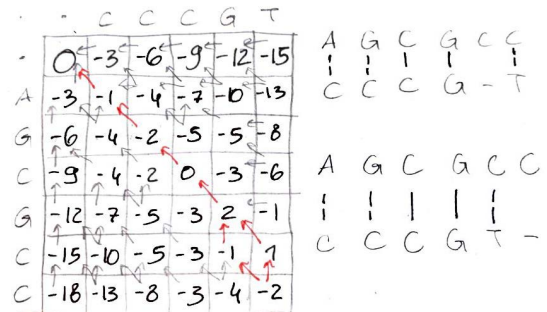 - - C C C G T
- 0 -3 -6 -9 -12 -15
A -3 -1 -4 -7 -10 -13
G -6 -4 -2 -5 -5 -8
C -9 -4 -2 0 -3 -6
G -12 -7 -5 -3 2 -1
C -15 -10 -5 -3 -1 1
C -18 -13 -8 -3 -4 -2
A G C G C C
C C C G - T
A G C G C C
C C C G T -